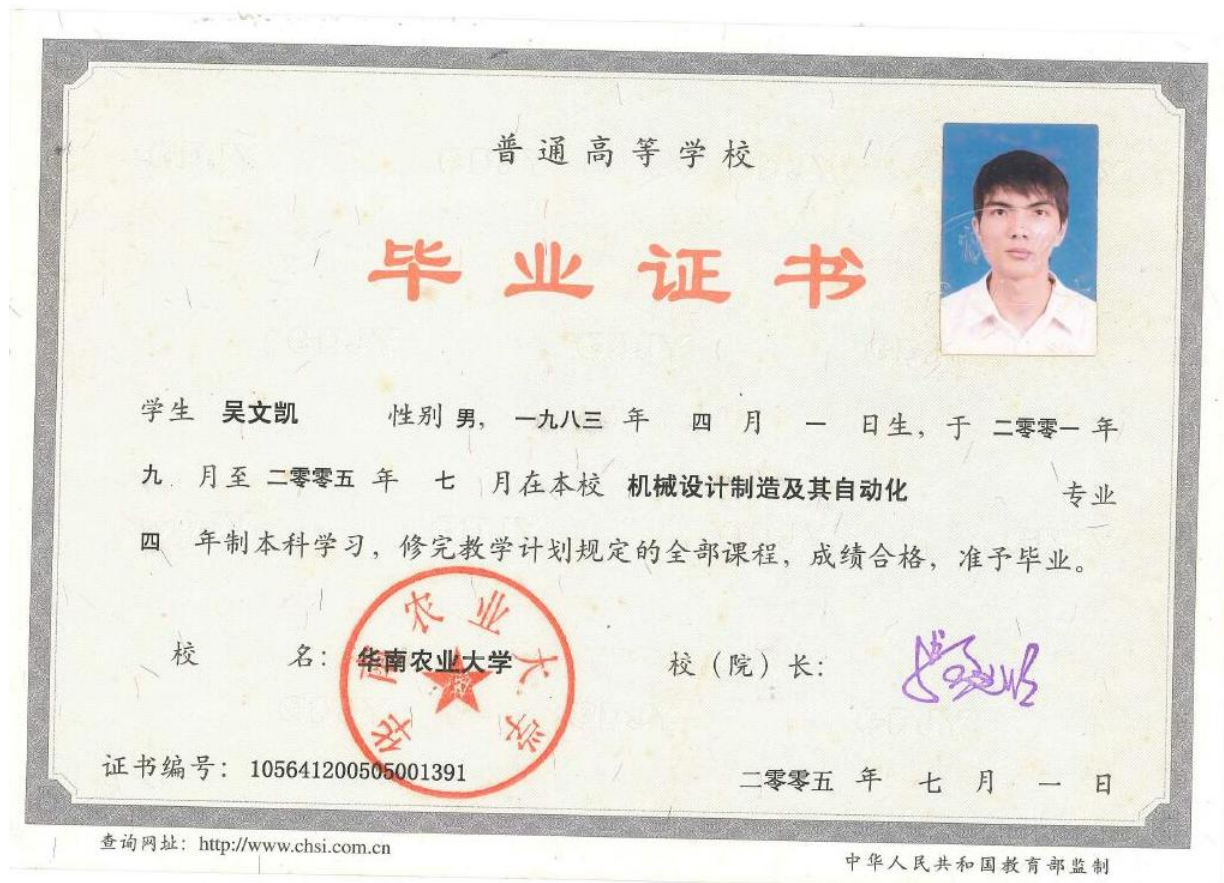 普通高等学校
毕业证书
学生 吴文凯 性别 男, 一九八三 年 四 月 一 日生, 于 二零零一 年
九 月至 二零零五 年 七 月在本校 机械设计制造及其自动化 专业
四 年制本科学习, 修完教学计划规定的全部课程, 成绩合格, 准予毕业。
华南农业大学
校 名: 华南农业大学 校（院）长:
证书编号: 105641200505001391 二零零五 年 七 月 一 日
查询网址: http://www.chsi.com.cn 中华人民共和国教育部监制